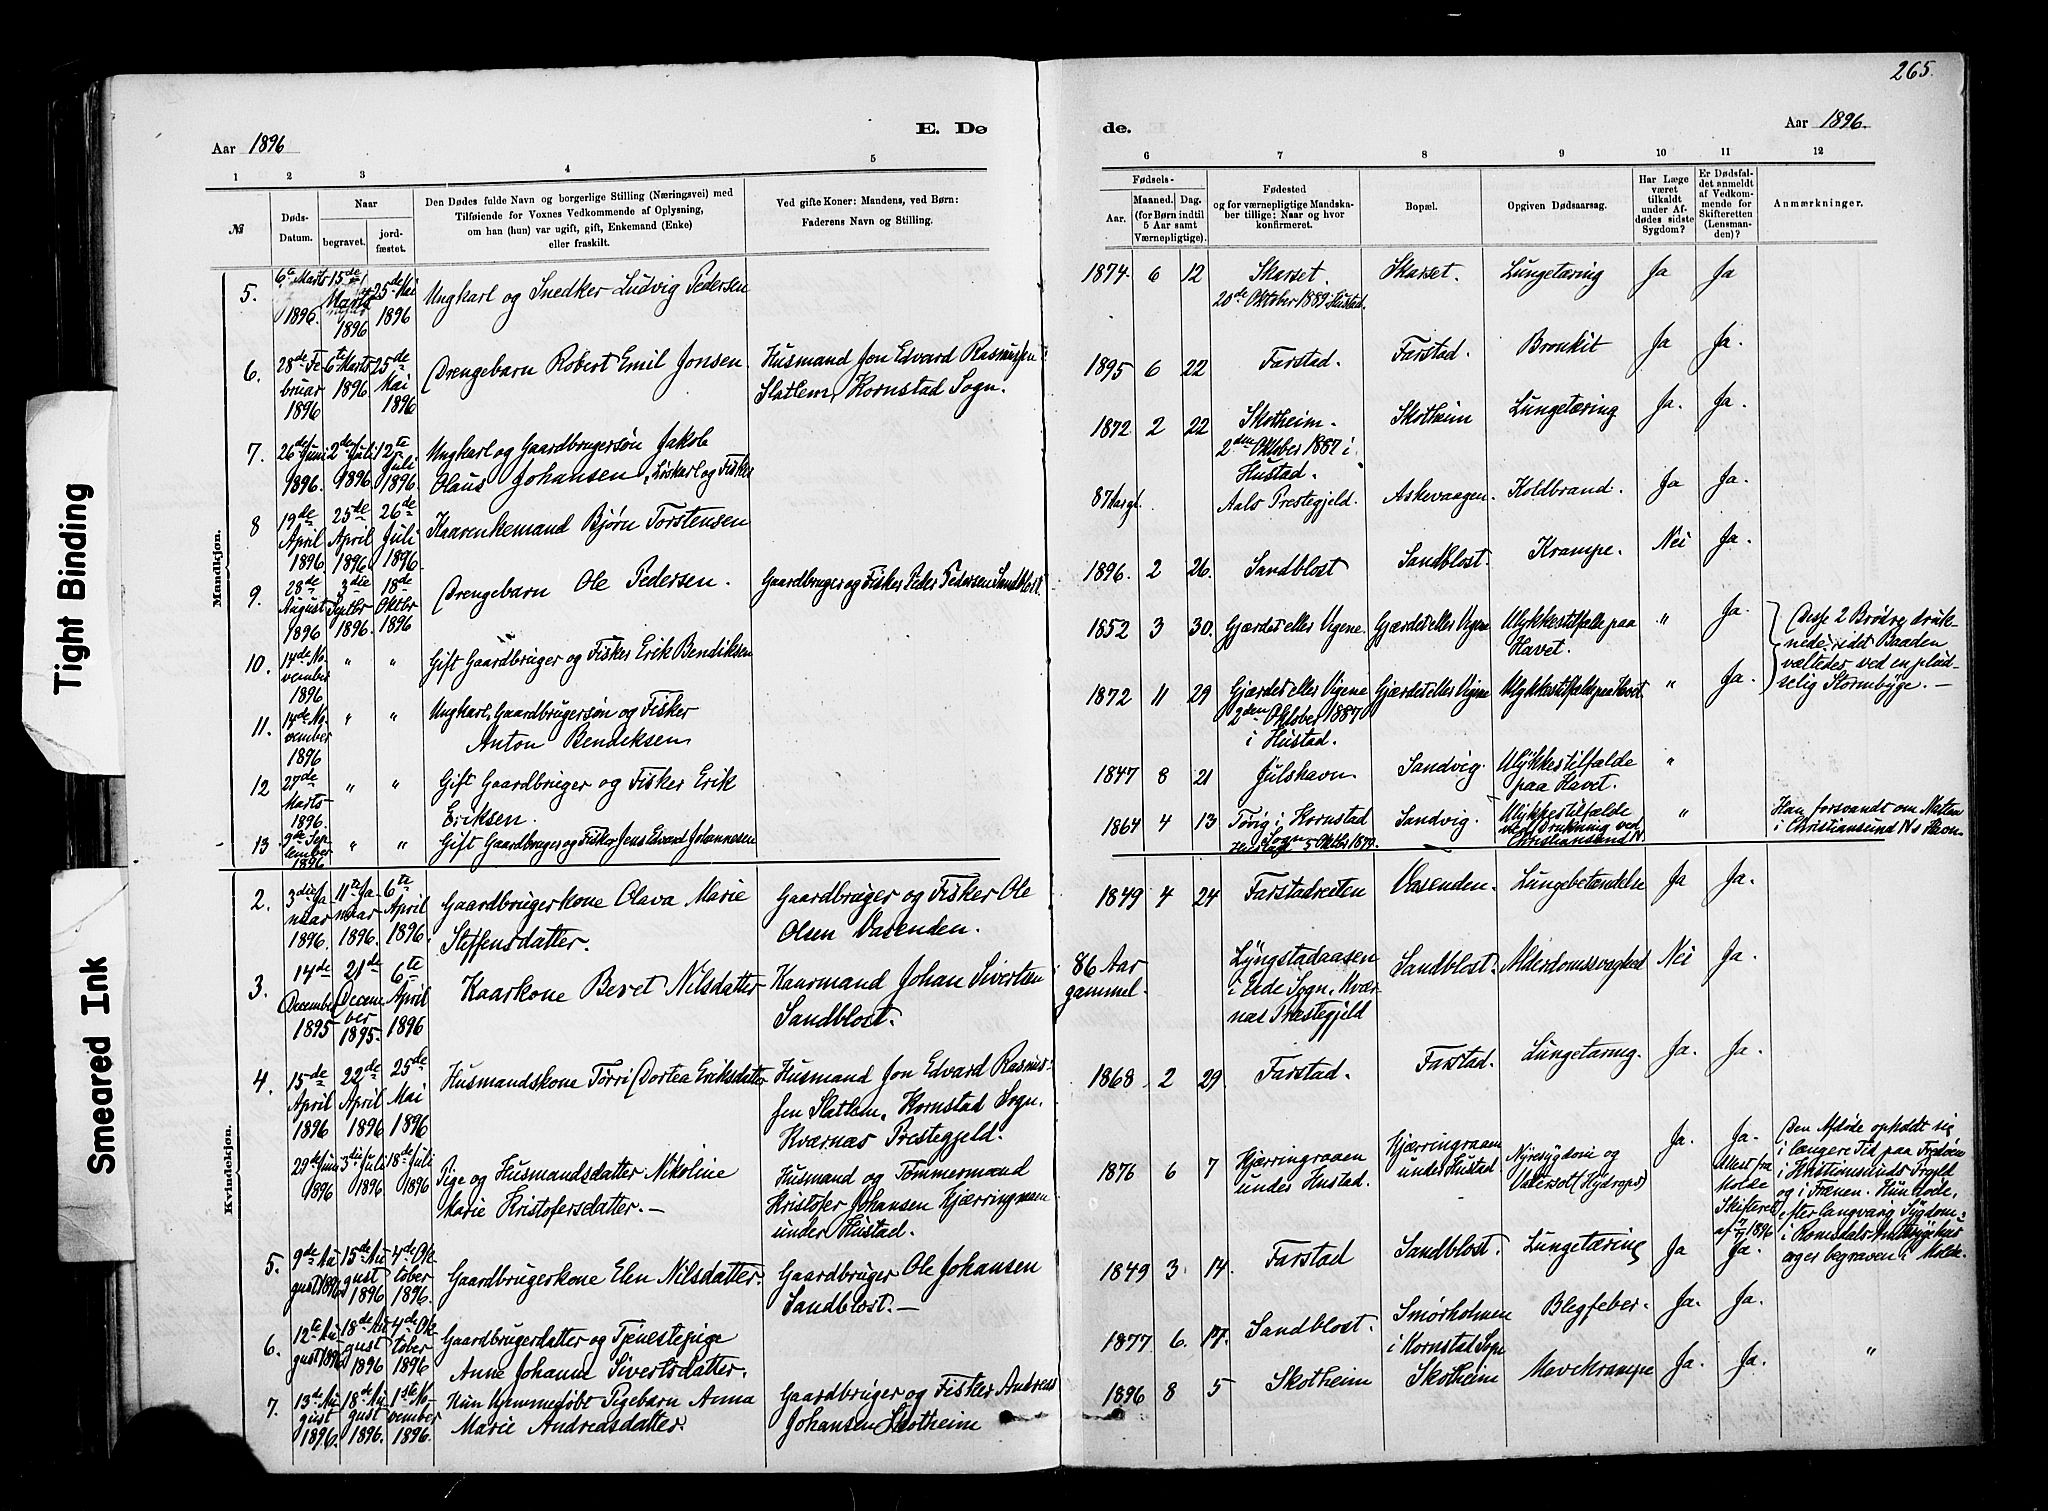 265.
Aar 1896
E. Dø
de.
Aar 1896.
1 2 3 4 5 6 7 8 9 10 11 12
№
Døds-
Datum.
Naar
begravet.
jord-
fæstet.
Den Dødes fulde Navn og borgerlige Stilling (Næringsvei) med
Tilføiende for Voxnes Vedkommende af Oplysning,
om han (hun) var ugift, gift, Enkemand (Enke)
eller fraskilt.
Ved gifte Koner: Mandens, ved Børn:
Faderens Navn og Stilling.
Fødsels-
Aar.
Maaned. Dag.
(for Børn indtil
5 Aar samt
Værnepligtige).
Fødested
og for værnepligtige Mandska-
ber tillige: Naar og hvor
konfirmeret.
Bopæl.
Opgiven Dødsaarsag.
Har Læge
været
tilkaldt
under Af-
dødes sidste
Sygdom?
Er Dødsfal-
det anmeldt
af Vedkom-
mende for
Skifteretten
(Lensman-
den)?
Anmærkninger.
Mandkjøn.
5.
6te Marts
1896.
15de
Marts
1896
25de Mai
1896
Ungkarl og Snedker Ludvig Pedersen
1874 6 12
Skarset.
20de Oktober 1889 i Hustad.
Skarset.
Lungetæring
Ja
Ja
6.
28de Fe-
bruar
1896
6te Marts
1896.
25de
Mai
1896
Drengebarn Robert Emil Jonsen
Husmand Jon Edvard Rasmussen
Slatlem, Kornstad Sogn.
1895 6 22
Farstad.
Farstad.
Bronkit
Ja
Ja.
7.
26de Juni
1896.
2den Juli
1896.
12te
Juli
1896.
Ungkarl og Gaardbrugersøn Jakob
Olaus Johansen, Løskarl og Fisker
1872 2 22
Skotheim.
2den Oktober 1887 i
Hustad.
Skotheim
Lungetæring
Ja.
Ja.
8
19de
April
1896
25de
April
1896
26de
Juli
1896.
Kaarenkemand Bjørn Torstensen
87 Aar gl.
Aals Prestegjeld.
Askevaagen.
Koldbrand.
Ja
Ja.
9.
28de
August
1896
3die
Septbr
1896.
18de
Oktbr
1896
Drengebarn Ole Pedersen.
Gaardbruger og Fisker Peder Pedersen Sandblost.
1896. 2 26.
Sandblost
Sandblost.
Krampe.
Nei
Ja.
10.
14de No-
vember
1896
" "
Gift Gaardbruger og Fisker Erik Bendiksen
1852 3 30.
Gjærdet eller Vigene.
Gjærdet eller Vigene
Ulykkestilfælde paa
Havet.
"
Ja.
Disse 2 Brødre druk-
nede, idet Baaden
væltedes ved en plud-
selig Stormbyge. —
11.
14de No-
vember
1896
" "
Ungkarl, Gaardbrugersøn og Fisker
Anton Bendiksen
1872 11 29
Gjærdet eller Vigene
2den Oktober 1887
i Hustad.
Gjærdet eller Vigene
Ulykkestilfælde paa Havet.
"
Ja.
12
27de
Marts
1896.
" "
Gift Gaardbruger og Fisker Erik
Eriksen.
1847 8 21
Julshavn
Sandvig.
Ulykkestilfælde
paa Havet.
"
13
9de Sep-
tember
1896
" "
Gift Gaardbruger og Fisker Jens Edvard Johannesen
1864 4 13
Tøvig i Kornstad
Sogn
Hustad 5 Oktbr 1879.
Sandvig.
Ulykkestilfælde
ved Drukning ved
Christiansund N.
"
Han forsvandt om Natten
i Christiansund N's Havn.
Kvindekjøn.
2.
3die Ja-
nuar
1896.
11te Ja-
nuar
1896.
6te
April
1896.
Gaardbrugerkone Olava Marie
Steffensdatter.
Gaardbruger og Fisker Ole
Olsen Vasenden.
1849 4 24
Farstadreiten
Vasenden.
Lungebetændelse
Ja
Ja.
3.
14de
December
1895
21de
Decem-
ber
1895.
6te
April
1896
Kaarkone Beret Nilsdatter
Kaarmand Johan Sivertsen
Sandblost.
86 Aar
gammel.
Lyngstadaasen
i Eide Sogn, Kvær-
nes Prestegjeld
Sandblost.
Alderdomssvaghed
Nei
Ja.
4.
15de
April
1896
22de
April
1896
25de
Mai
1896
Husmandskone Tørri Dortea Eriksdatter
Husmand Jon Edvard Rasmus-
sen Slatlem, Kornstad Sogn,
Kværnæs Prestegjeld.
1868 2 29
Farstad.
Farstad.
Lungetæring.
Ja.
Ja.
29de Juni
1896
3die Juli
1896
18de Juli
1896
Pige og Husmandsdatter Nikoline
Marie Kristofersdatter. —
Husmand og Tømmermand
Kristofer Johansen Kjærringraaen
under Hustad.
1876 6 7
Kjærringraaen
under Hustad.
Kjærringraaen
under Hustad.
Nyresygdom og
Vatersot (Hydrops)
Ja.
Ja.
Attest fra
Molde
Skifteret
af 1896
Den Afdøde opholdt sig
i længere Tid paa Frydøen
i Kristiansunds Prgjld
og i Frænen. Hun døde,
efter langvarig Sygdom
i Romsdals Amtssygehus
og er begraven i Molde.
5.
9de Au-
gust 1896
15de Au-
gust
1896
4de Ok-
tober
1896.
Gaardbrugerkone Elen Nilsdatter.
Gaardbruger Ole Johansen
Sandblost. —
1849 3 14.
Farstad
Sandblost.
Lungetæring
Ja
Ja.
6.
12te Au-
gust 1896
18de Au-
gust
1896
4de Ok-
tober
1896
Gaardbrugerdatter og Tjenestepige
Anne Johanne Sivertsdatter.
1877 6. 17.
Sandblost.
Smørholmen
i Kornstad Sogn
Blegfeber.
Ja.
Ja.
7.
13de Au-
gust
1896.
18de Au-
gust
1896.
1ste No-
vember
1896.
Hun hjemmedøbt Pigebarn Anna
Marie Andreasdatter.
Gaardbruger og Fisker Andreas
Johansen Skotheim
1896 8 5
Skotheim
Skotheim
Mavekrampe
Ja.
Ja.
"
Tight Binding
Smeared Ink